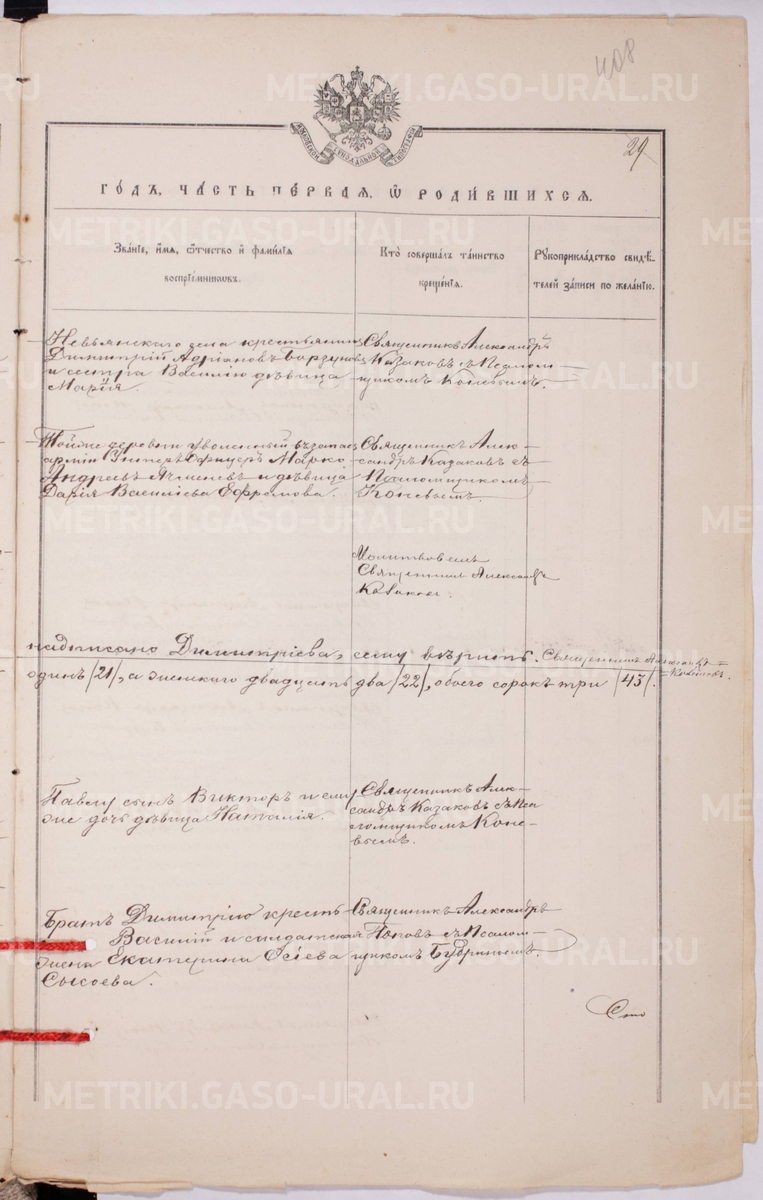 408
29
МОСКОВСКОЙ СѴНОДАЛЬНОЙ ТИПОГРАФІИ
ГОДЪ, ЧАСТЬ ПЕРВАЯ, Ѡ РОДИВШИХСЯ.
Званіе, имя, ѿчество и фамилія воспріемниковъ.
Кто совершалъ таинство крещенія.
Рукоприкладство свидѣтелей записи по желанію.
Невьянскаго села крестьянинъ
Димитрій Адріановъ
и сестра Василію дѣвица
Марія.
Священникъ Александръ
Казаковъ съ Псалом-
щикомъ Коневымъ.
Тойже деревни уволенный въ запасъ
арміи Унтеръ Офицеръ Марко
Андреевъ Ячменевъ и дѣвица
Дарія Василіева Ефремова.
Священникъ Алек-
сандръ Казаковъ съ
Псаломщикомъ
Коневымъ.
Молитвовалъ
Священникъ Александръ
Казаковъ.
надписано Димитріева, сему вѣрить. Священникъ Александръ
Казаковъ.
одинъ /21/, а женскаго двадцать два /22/, обоего сорокъ три /43/.
Павлу сынъ Викторъ и ему
же дочь дѣвица Наталія.
Священникъ Алек-
сандръ Казаковъ съ Пса
ломщикомъ Коне-
вымъ.
Братъ Димитрію кресть-
Василій и солдатская
жена Екатерина Осіева
Сысоева.
Священникъ Александръ
Поповъ съ Псалом-
щикомъ Бубриньемъ.
METRIKI.GASO-URAL.RU